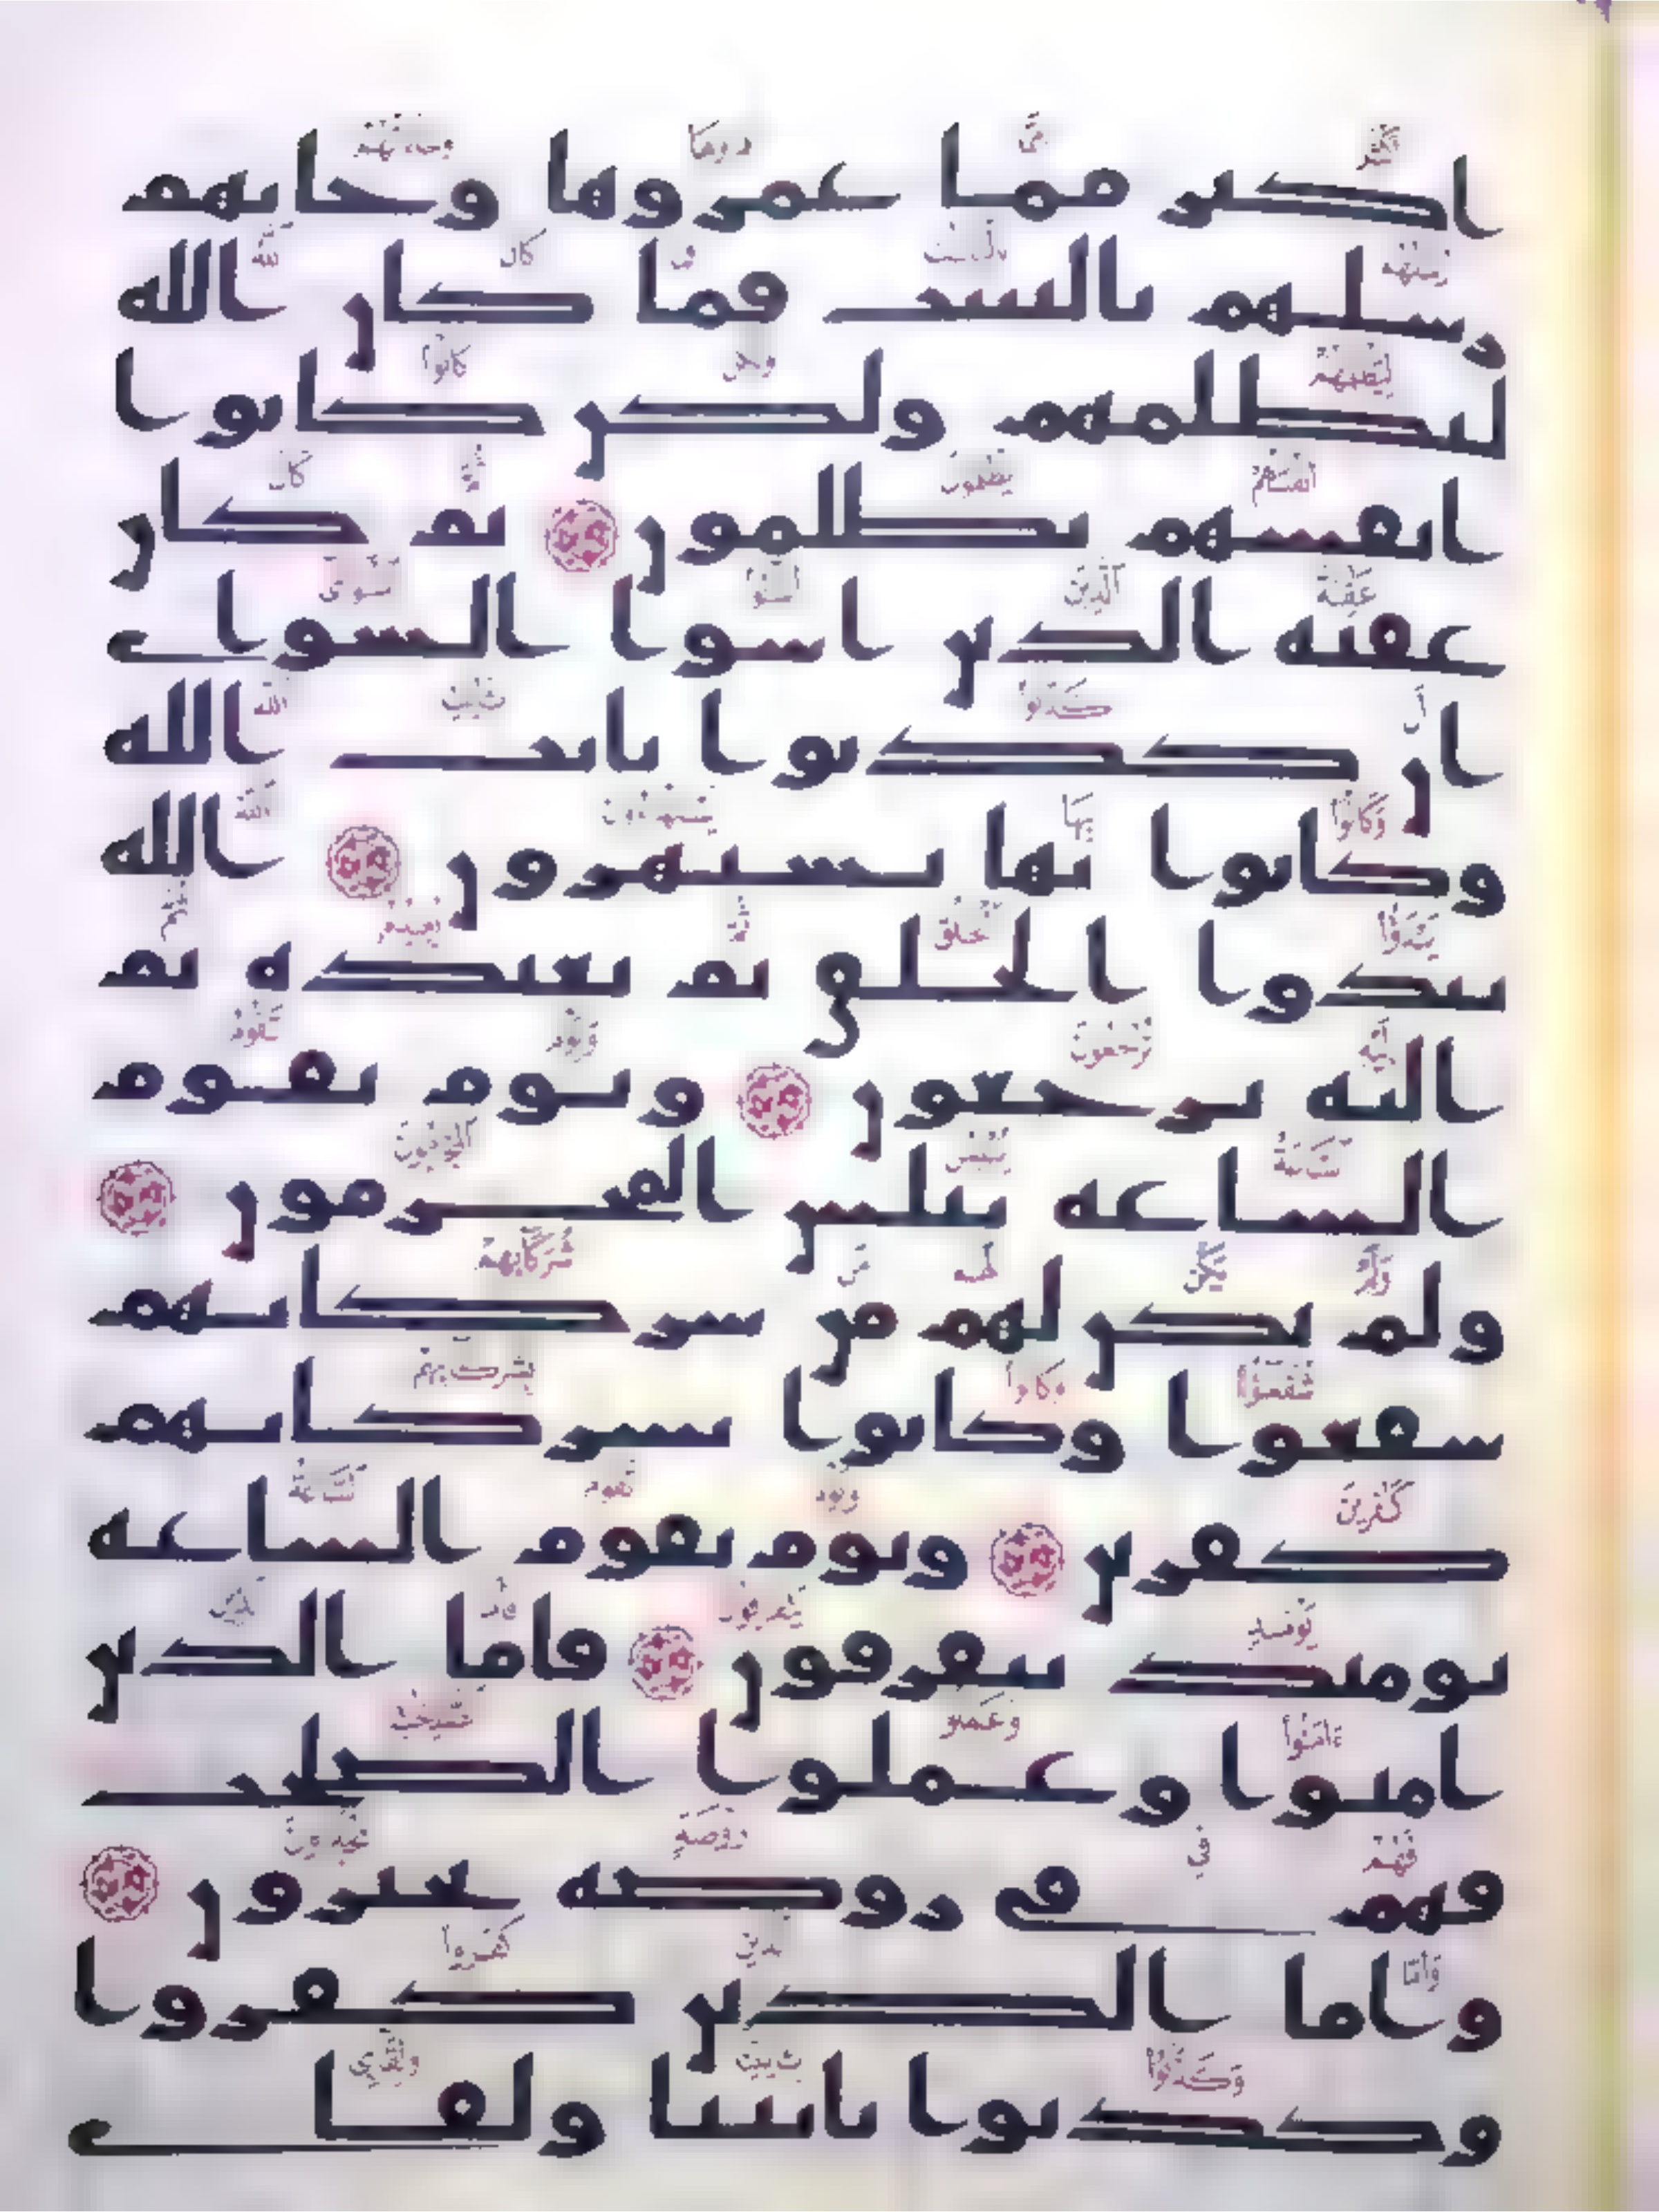 اكثر مما عمروها وجاتهم
رسلهم بالبينت فما كان الله
ليظلمهم ولكن كانوا
انفسهم يظلمون ثم كان
عقبه الذين اسوا السواى
ان كذبوا بايت الله
وكانوا بها يستهزون الله
يبدوا الخلق ثم يعيده ثم
اليه ترجعون ويوم تقوم
الساعه يبلس المجرمون
ولم يكن لهم من شركايهم
شفعوا وكانوا بشركايهم
كفرين ويوم تقوم الساعه
يوميذ يتفرقون فاما الذين
امنوا وعملوا الصلحت
فهم في روضه يحبرون
واما الذين كفروا
وكذبوا بايتنا ولقاي